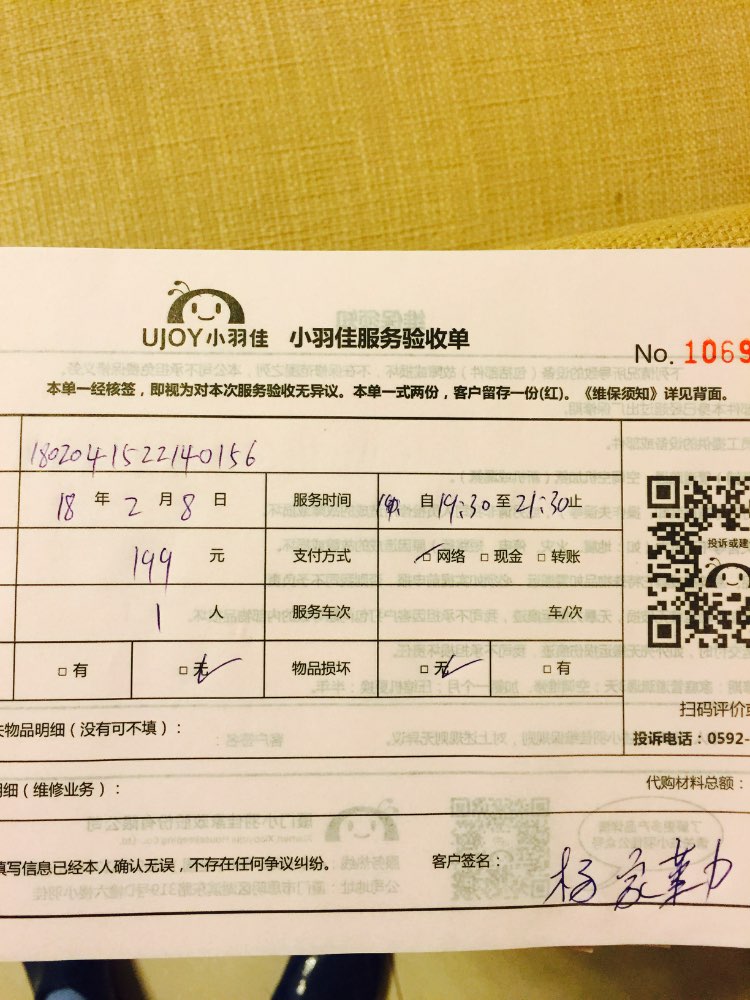 UJOY小羽佳 小羽佳服务验收单
No. 1069
本单一经核签，即视为对本次服务验收无异议。本单一式两份，客户留存一份(红)。《维保须知》详见背面。
1802041522140156
18 年 2 月 8 日 服务时间 自 19:30 至 21:30 止
199 元 支付方式 □ 网络 □ 现金 □ 转账
1 人 服务车次 车/次
□ 有 □ 无 物品损坏 □ 无 □ 有
投诉或建
扫码评价或
投诉电话：0592-
物品明细（没有可不填）：
细（维修业务）： 代购材料总额：
填写信息已经本人确认无误，不存在任何争议纠纷。 客户签名： 杨家勤